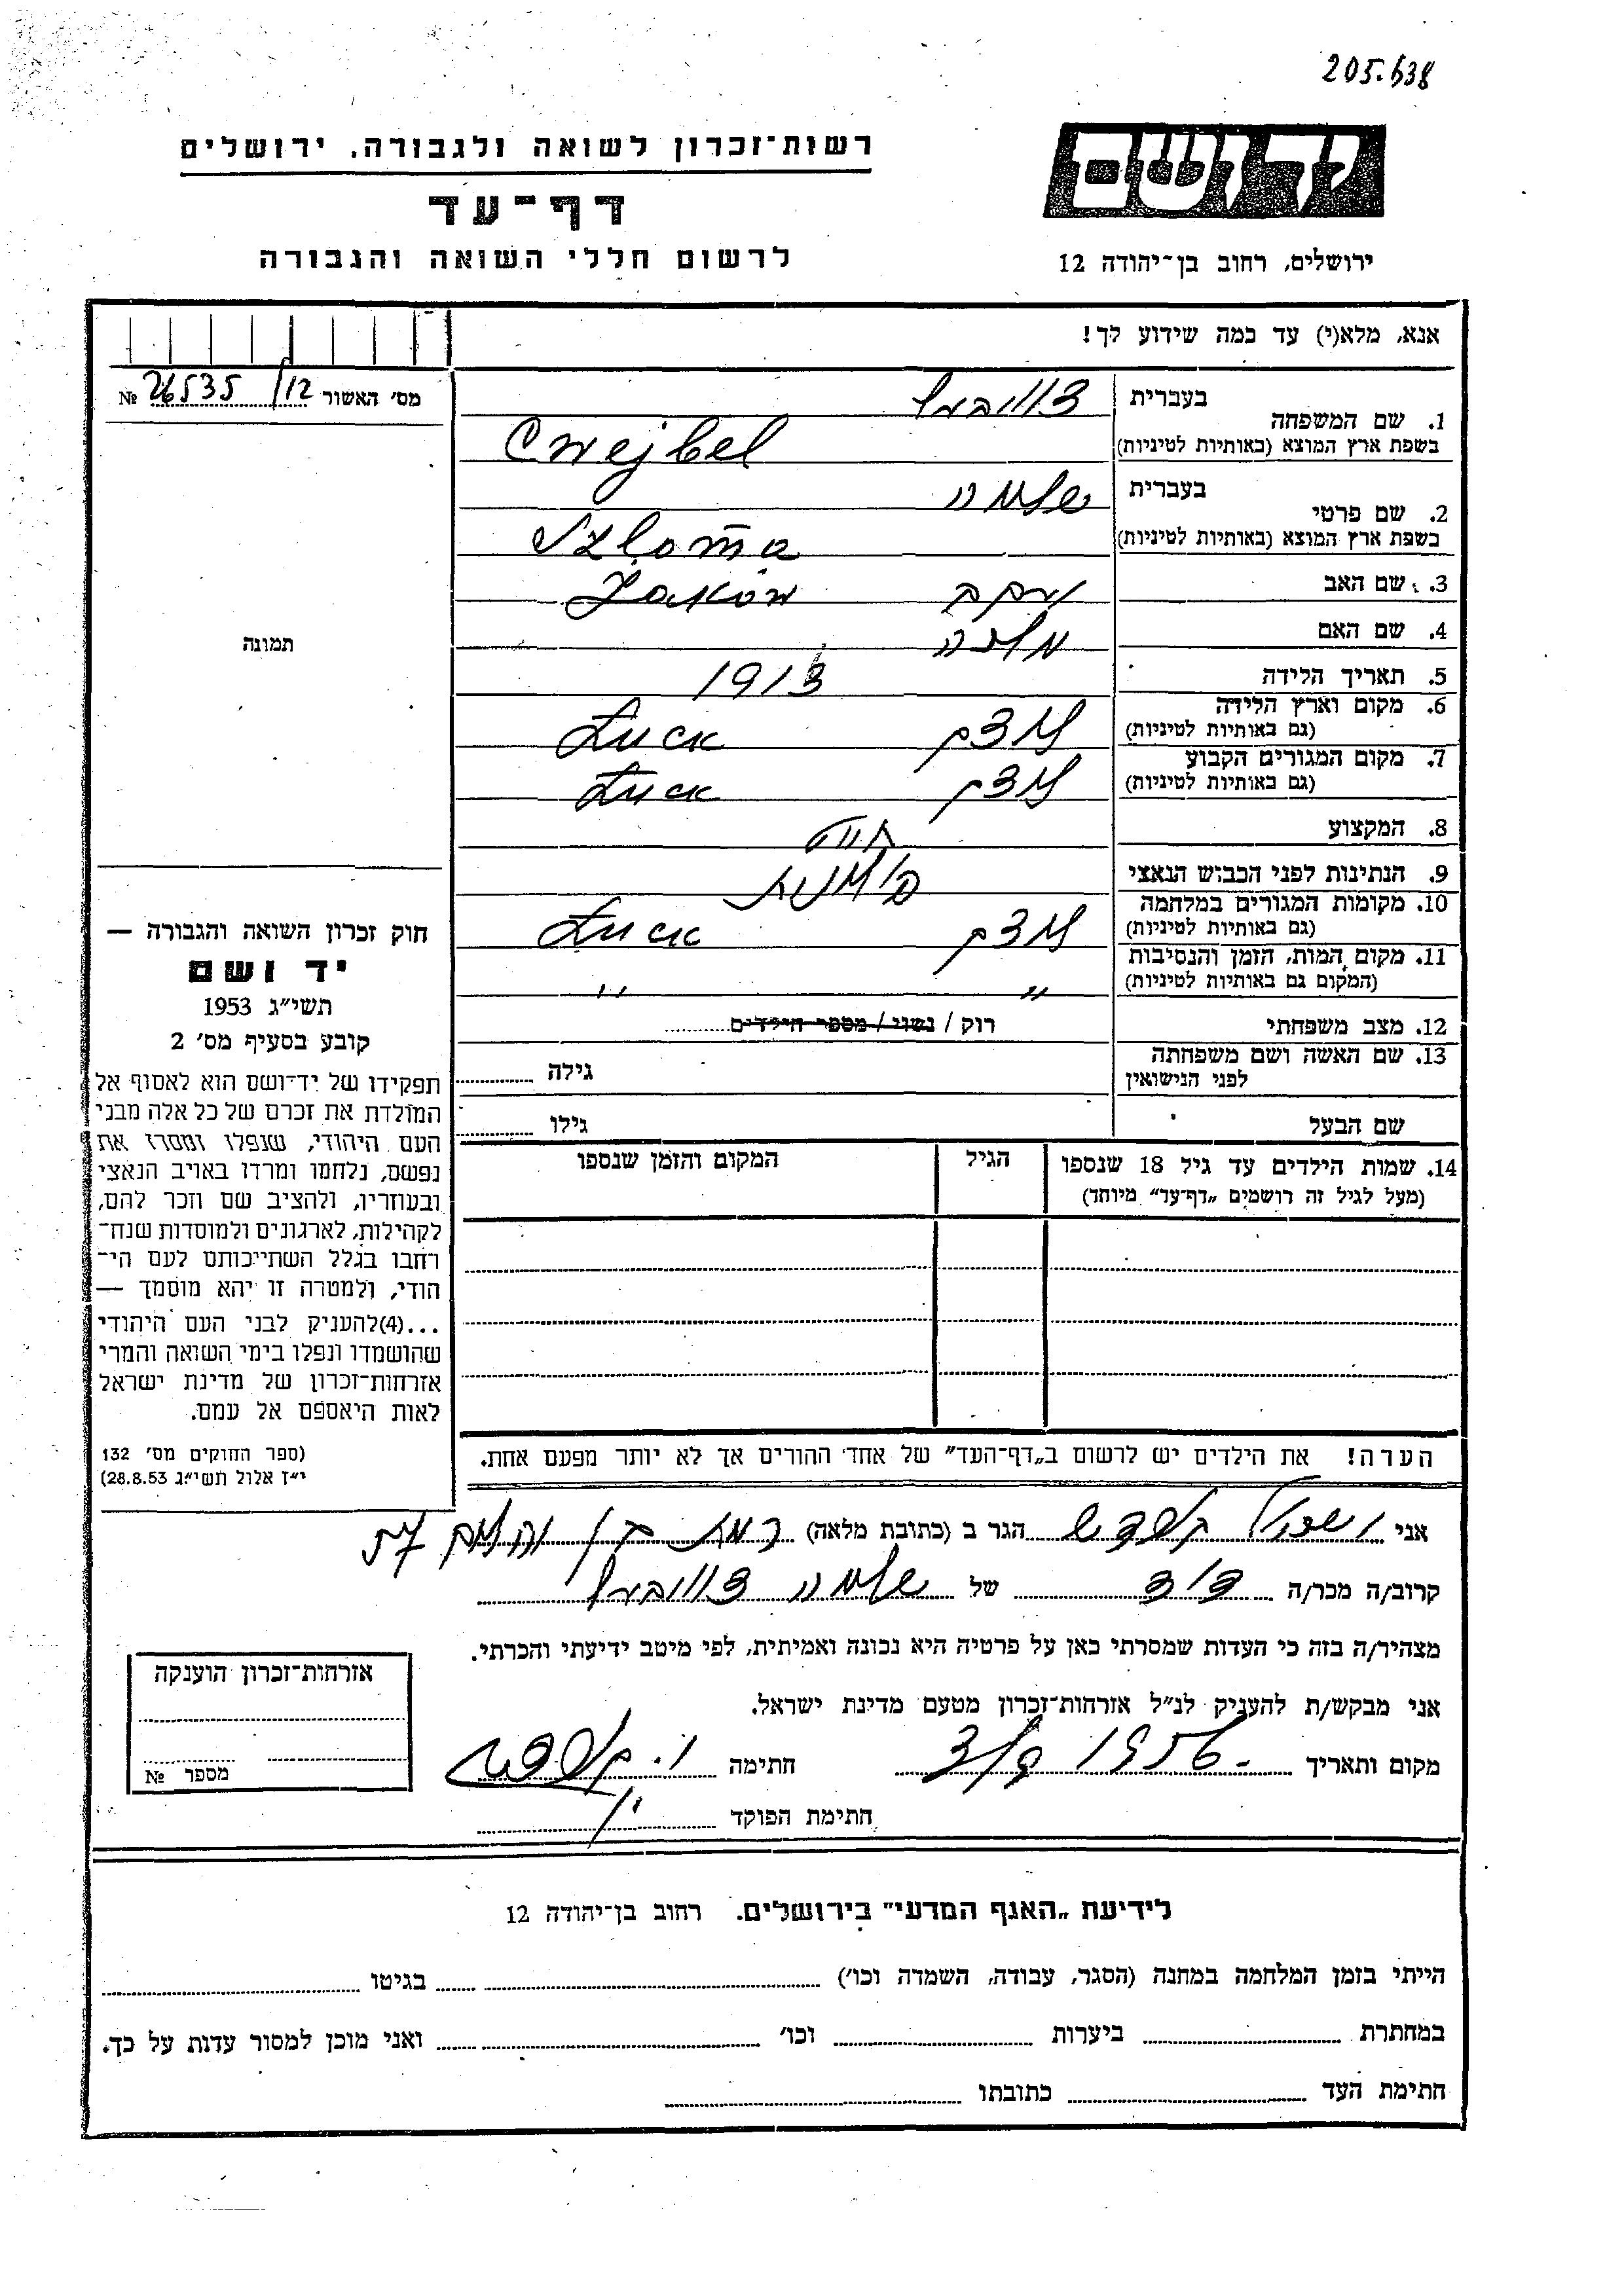 205.638
רשות־זכרון לשואה ולגבורה. ירושלים
דף־עד
לרשום חללי השואה והגבורה
יד ושם
ירושלים, רחוב בן־יהודה 12
אנא, מלא(י) עד כמה שידוע לך!
מס׳ האשור 26535/12 №
תמונה
1. שם המשפחה
בעברית צווייבל
בשפת ארץ המוצא (באותיות לטיניות) Cwejbel
2. שם פרטי
בעברית שלמה
בשפת ארץ המוצא (באותיות לטיניות) Szloma
3. שם האב יעקב Jakow
4. שם האם מלכה
5. תאריך הלידה 1913
6. מקום וארץ הלידה
(גם באותיות לטיניות) לוצק Łuck
7. מקום המגורים הקבוע
(גם באותיות לטיניות) לוצק Łuck
8. המקצוע חייט
9. הנתינות לפני הכבוש הנאצי פולנית
10. מקומות המגורים במלחמה
(גם באותיות לטיניות) לוצק Łuck
11. מקום המות, הזמן והנסיבות
(המקום גם באותיות לטיניות) " "
12. מצב משפחתי רוק / נשוי / מספר הילדים
13. שם האשה ושם משפחתה
לפני הנישואין גילה
שם הבעל גילו
14. שמות הילדים עד גיל 18 שנספו
(מעל לגיל זה רושמים „דף־עד״ מיוחד)
הגיל
המקום והזמן שנספו
חוק זכרון השואה והגבורה —
יד ושם
תשי״ג 1953
קובע בסעיף מס׳ 2
תפקידו של יד־ושם הוא לאסוף אל
המולדת את זכרם של כל אלה מבני
העם היהודי, שנפלו ומסרו את
נפשם, נלחמו ומרדו באויב הנאצי
ובעוזריו, ולהציב שם וזכר להם,
לקהילות, לארגונים ולמוסדות שנח־
רחבו בגלל השתייכותם לעם הי־
הודי, ולמטרה זו יהא מוסמך —
...(4)להעניק לבני העם היהודי
שהושמדו ונפלו בימי השואה והמרי
אזרחות־זכרון של מדינת ישראל
לאות היאספם אל עמם.
(ספר החוקים מס׳ 132
י״ז אלול תשי״ג 28.8.53)
הערה! את הילדים יש לרשום ב„דף־העד״ של אחד ההורים אך לא יותר מפעם אחת.
אני הגר ב (כתובת מלאה) רמת
קרוב/ה מכר/ה של שלמה צווייבל
מצהיר/ה בזה כי העדות שמסרתי כאן על פרטיה היא נכונה ואמיתית, לפי מיטב ידיעתי והכרתי.
אני מבקש/ת להעניק לנ״ל אזרחות־זכרון מטעם מדינת ישראל.
מקום ותאריך 1956 חתימה
חתימת הפוקד
אזרחות־זכרון הוענקה
מספר №
לידיעת „האגף המדעי״ בירושלים. רחוב בן־יהודה 12
הייתי בזמן המלחמה במחנה (הסגר, עבודה, השמדה וכו׳) בגיטו
במחתרת ביערות וכו׳ ואני מוכן למסור עדות על כך.
חתימת העד כתובתו